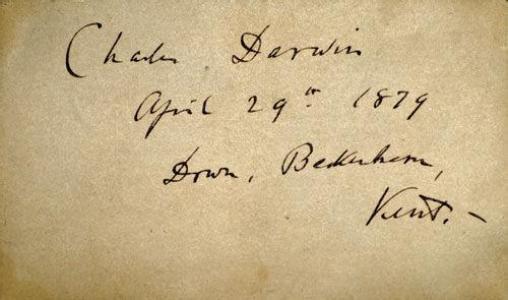 Charles Darwin
April 29th 1879
Down, Beckenham,
Kent. –